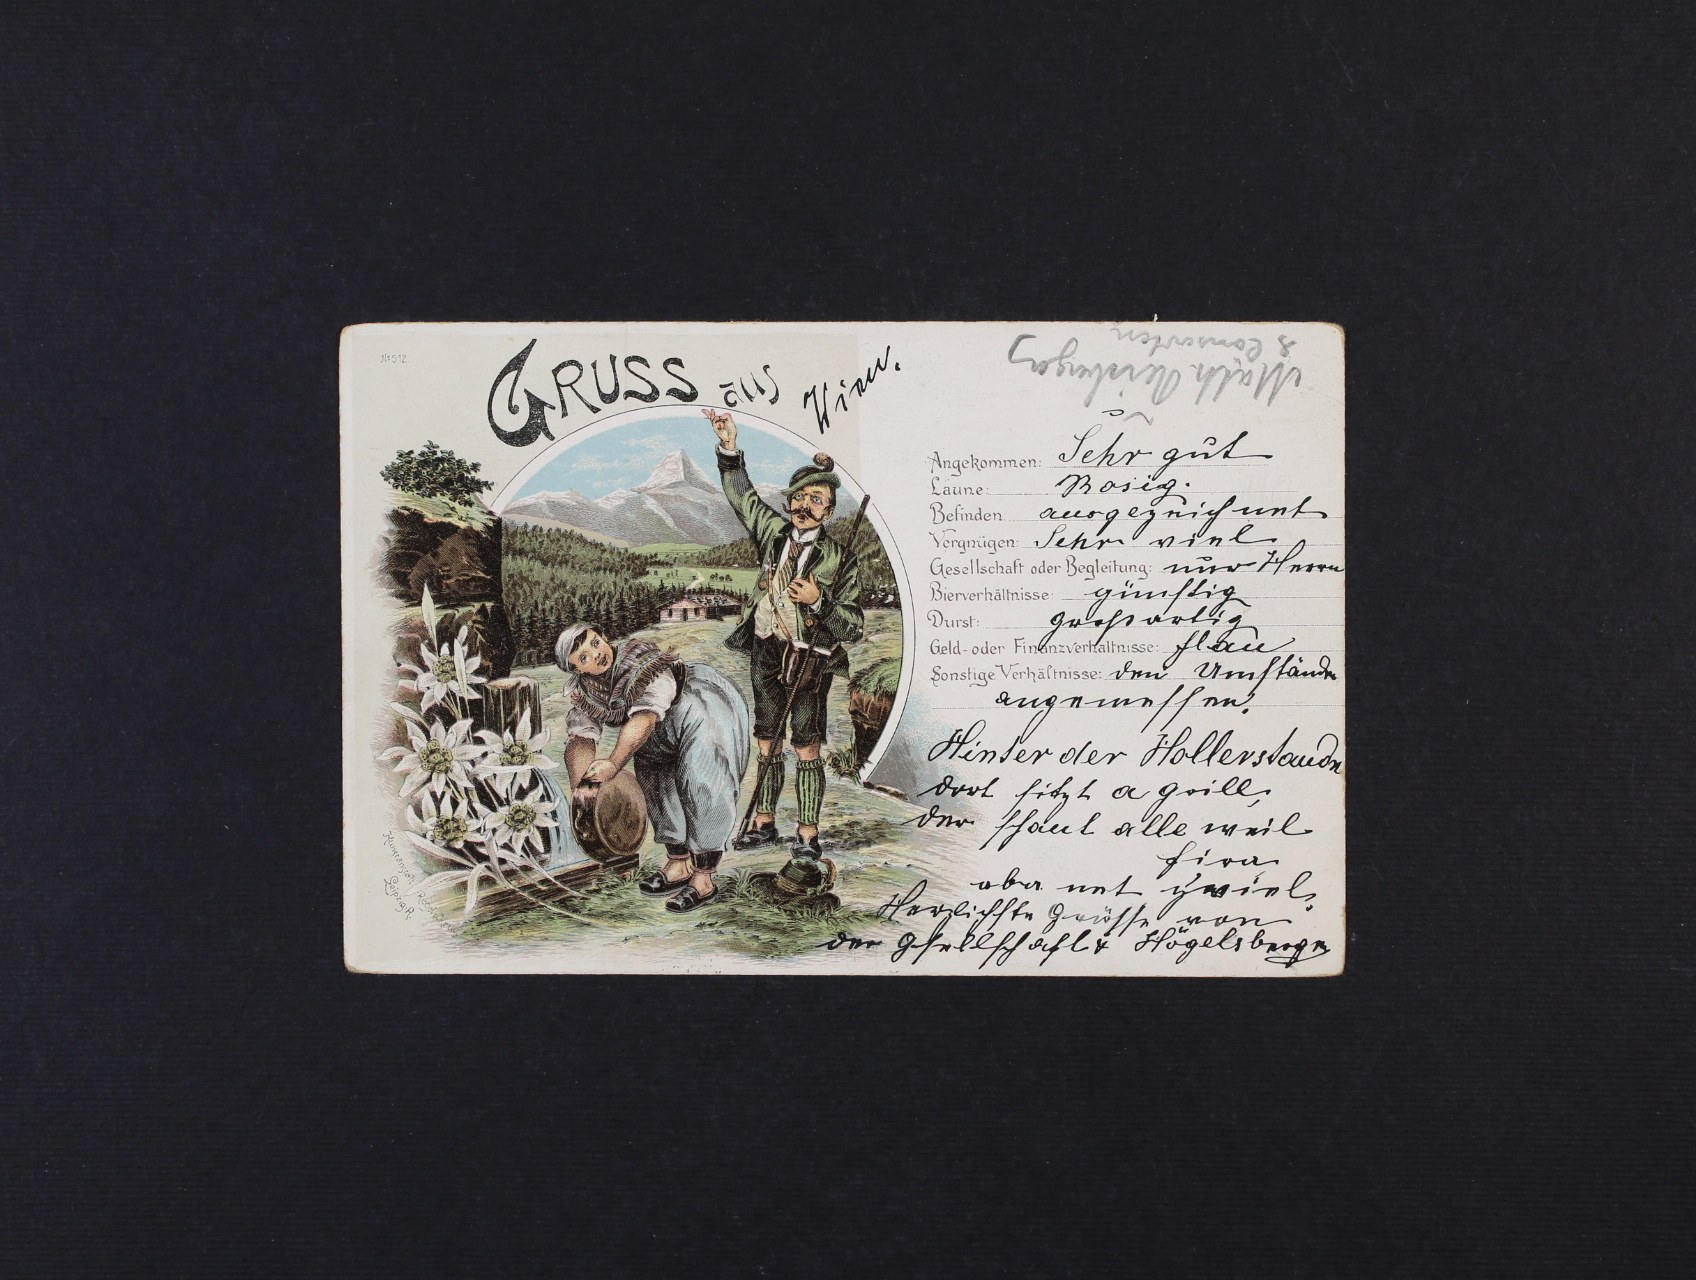 Nº 912.
GRUSS aus Wien.
Angekommen: Sehr gut
Laune: Rosig.
Befinden: ausgezeichnet
Vergnügen: Sehr viel
Gesellschaft oder Begleitung: nur Herrn
Bierverhältnisse: günstig
Durst: großartig
Geld- oder Finanzverhältnisse: flau
Sonstige Verhältnisse: den Umstände
angemessen.
Hinter der Hollerstaudn
dort sitzt a grill,
der schaut alle weil
fira
aba net zviel.
Herzlichste Grüsse von
der Gesellschaft & Högelsberger
Leipzig-R.